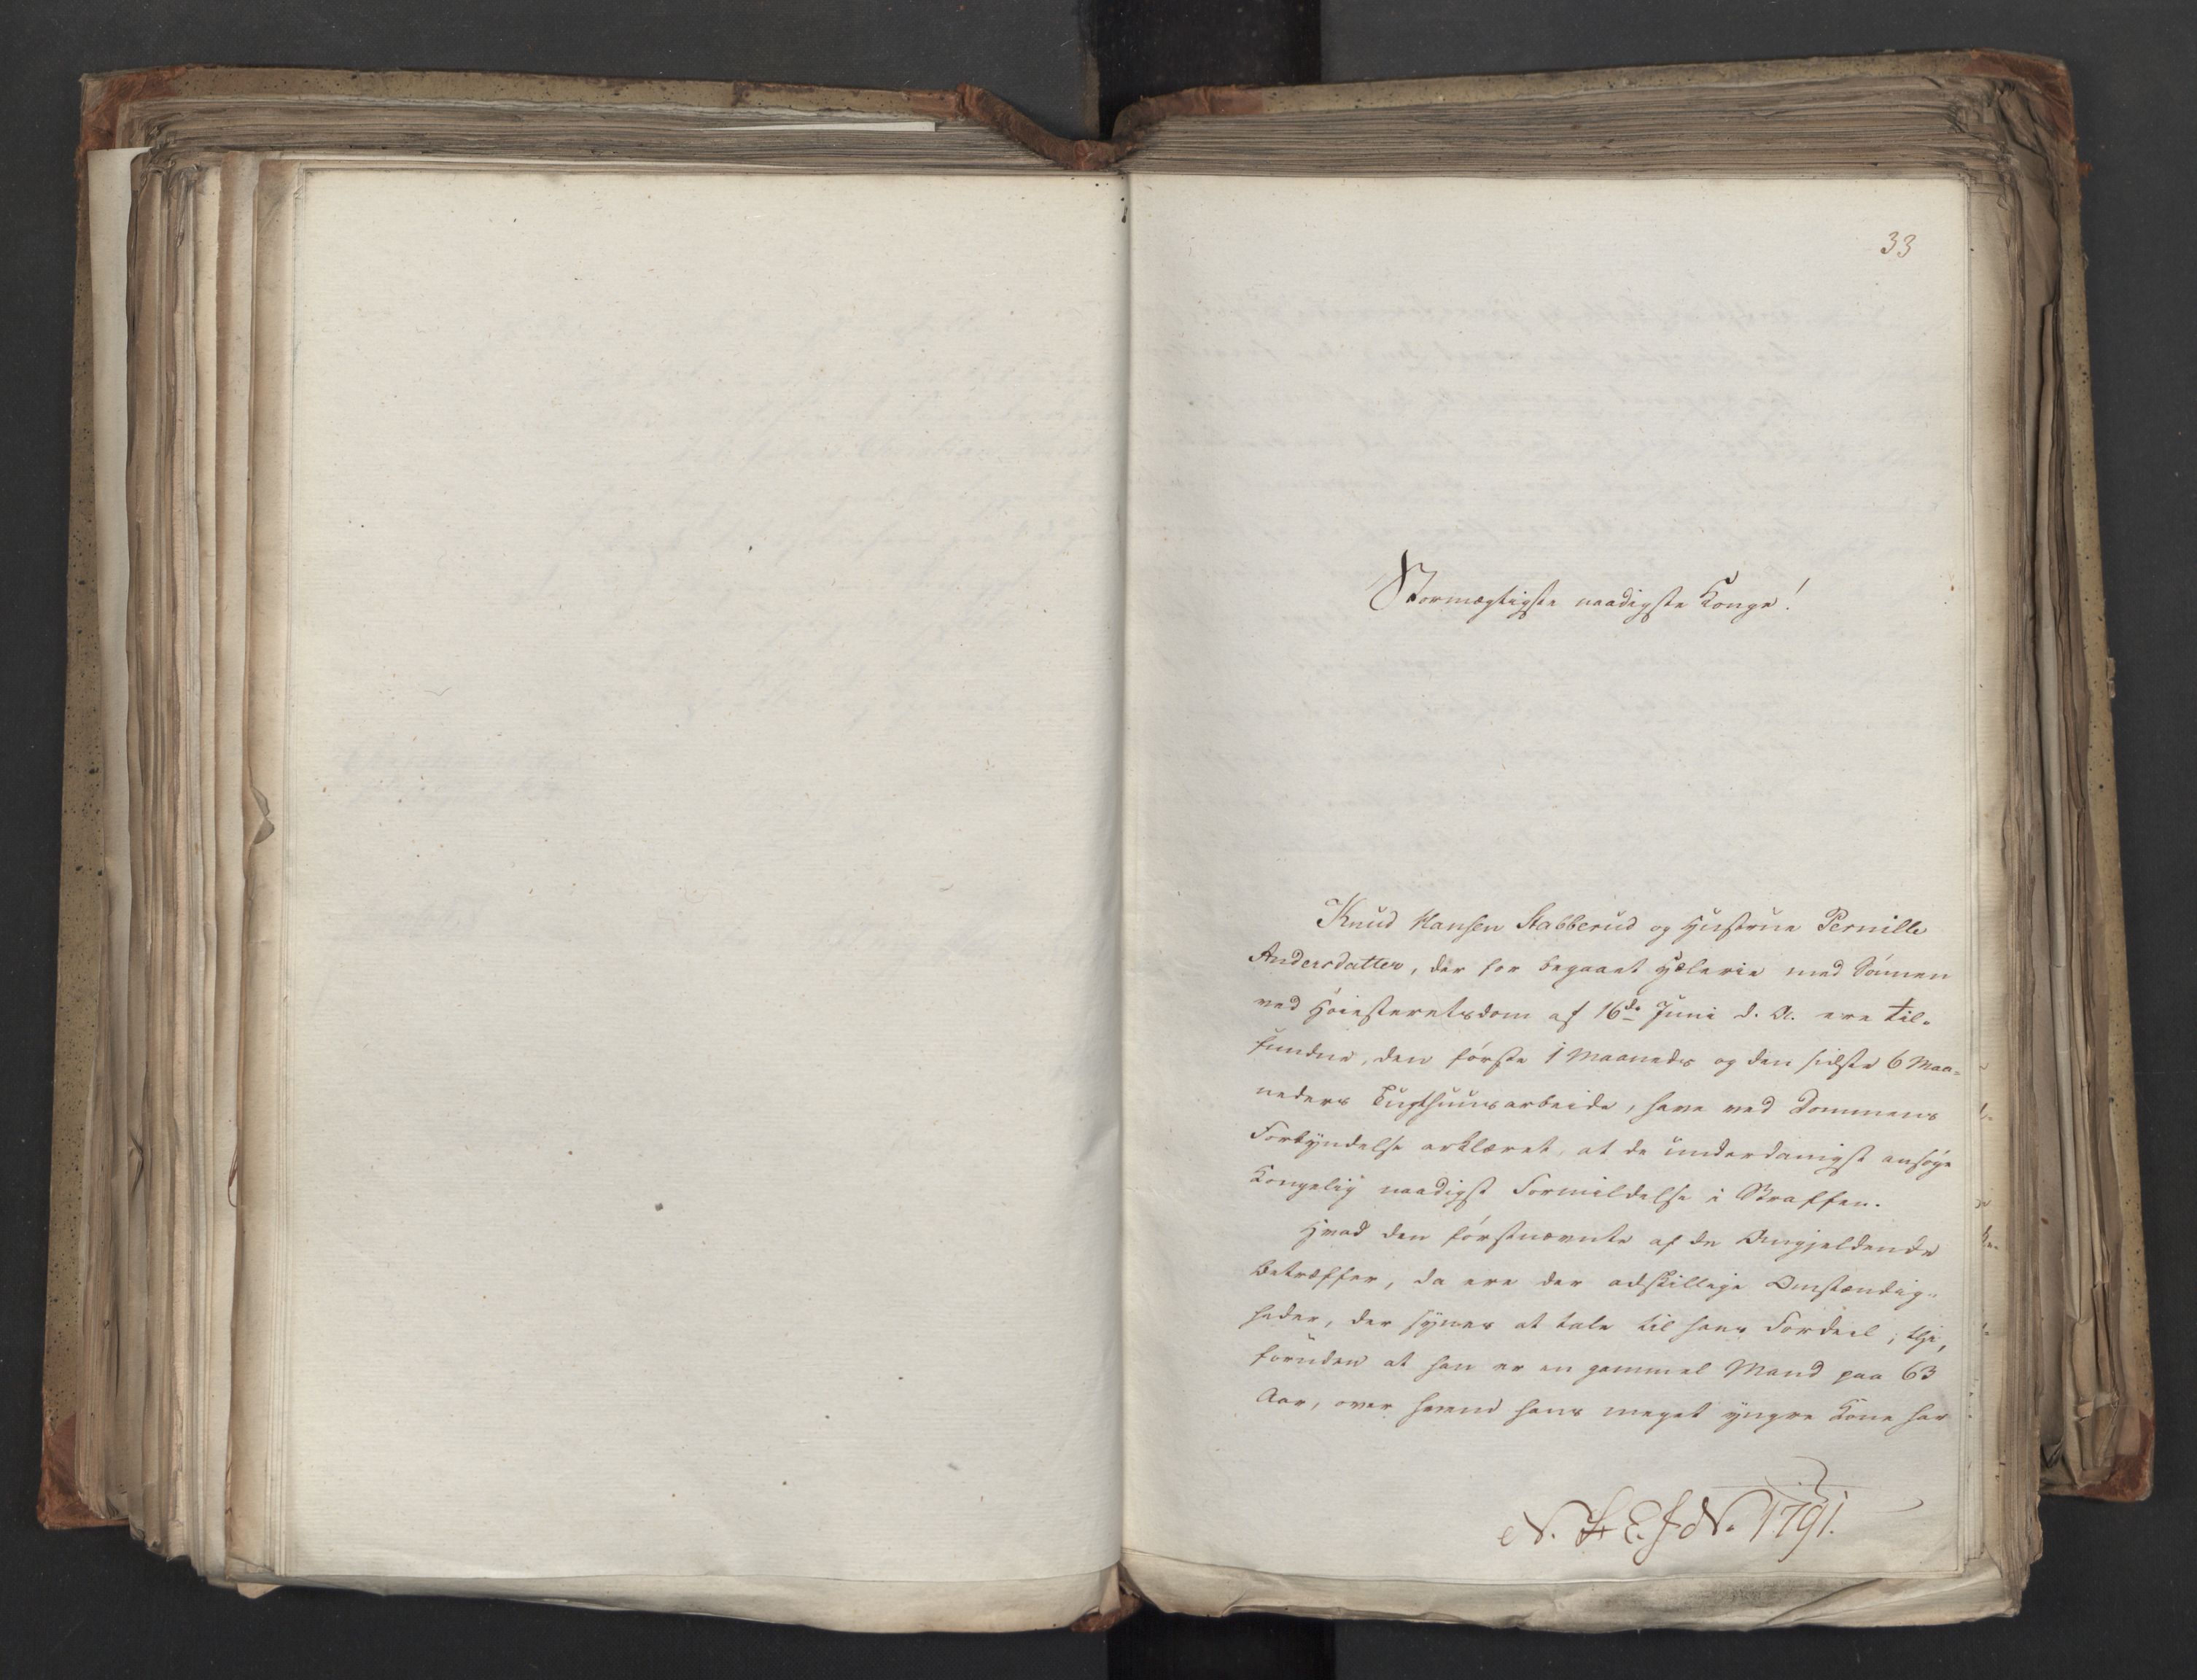 33
Stormægtigste naadigste Konge!
Knud Hansen Stabberud og Hustrue Pernille
Andersdatter, der for begaaet Hæleri med Sönnen
ved Höiesteretsdom af 16de Juni d. A. ere til-
fundne, den förste 1 Maaneds og den sidste 6 Maa-
neders Tugthuusarbeide, have ved Dommens
Forkyndelse erklæret, at de underdanigst ansöge
Kongelig naadigst Formildelse i Straffen.
Hvad den förstnævnte af de Angjeldende
betræffer, da ere der adskillige Omstændig-
heder, der synes at tale til hans Fordeel; thi,
foruden at han er en gammel Mand paa 63
Aar, over hvem hans meget yngre Kone har
1791.